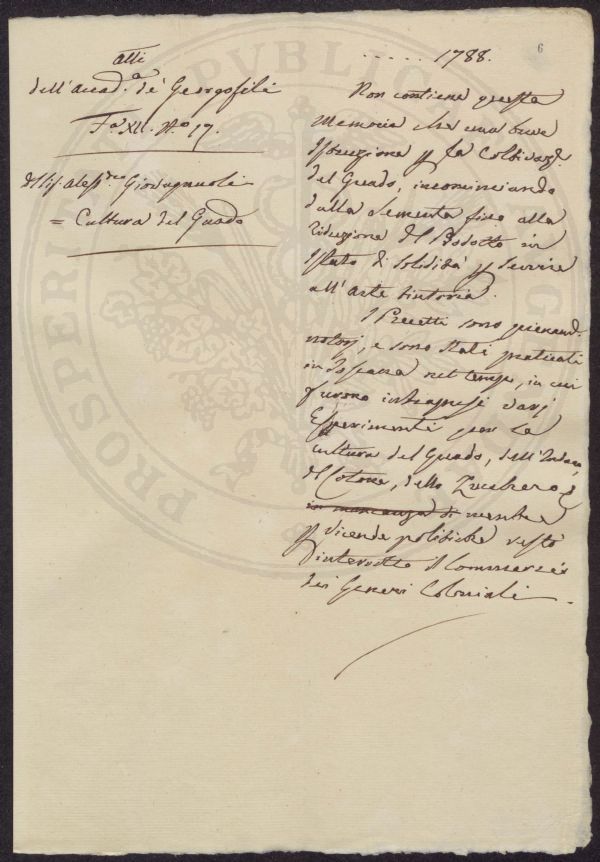 Atti
dell'Accad.a de' Georgofili
Fa. XII. N.o 17.
del Sig. Aless.dro Giovagnuoli
= Cultura del Guado
..... 1788.
6
Non contiene questa
Memoria che una breve
Istruzione p la Coltivaz.
del Guado, incominciando
dalla Sementa fino alla
riduzione del Prodotto in
Istato di solidità p servire
all'Arte tintoria.
I Precetti sono
notorj, e sono stati praticati
in Toscana nel tempo, in cui
furono intrapresi varj
Esperimenti per la
Cultura del Guado, dell'Indaco,
del Cotone, dello Zucchero
in mancanza di mentre
p vicende politiche restò
interrotto il Commercio
dei Generi Coloniali.
PROSPERITATI PUBLICAE